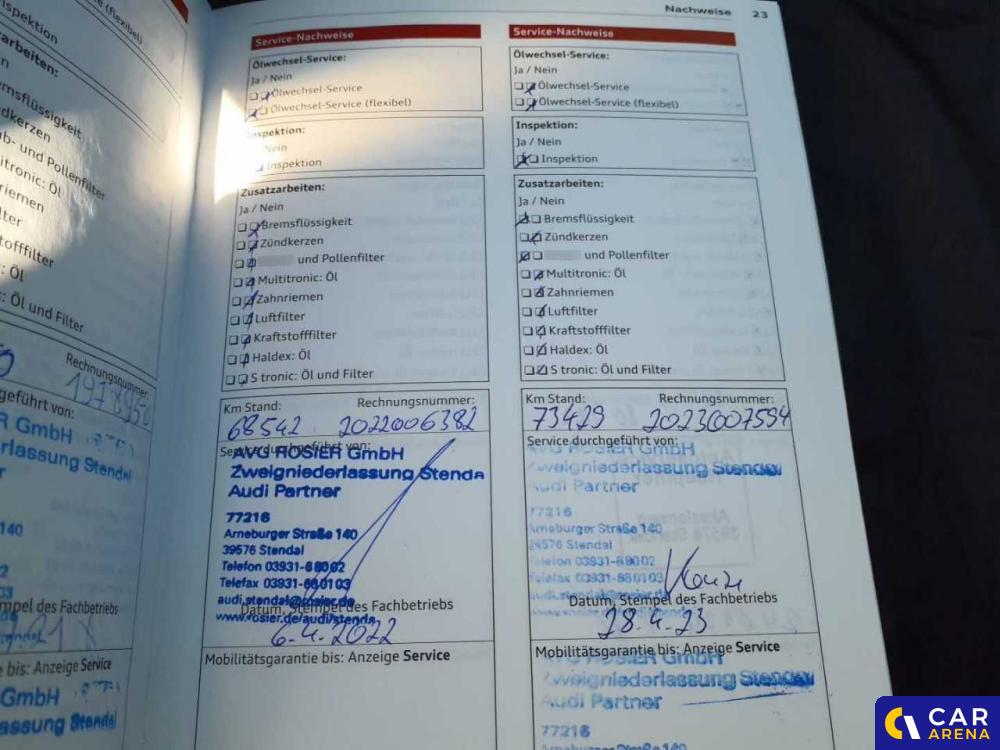 Nachweise 23
(flexibel)
Inspektion
arbeiten:
Bremsflüssigkeit
Zündkerzen
ub- und Pollenfilter
itronic: Öl
riemen
lter
tofffilter
: Öl
: Öl und Filter
Rechnungsnummer:
geführt von:
R GmbH
erlassung Stendal
140
mpel des Fachbetriebs
e bis: Anzeige Service
GmbH
assung Stendal
Service-Nachweise
Ölwechsel-Service:
Ja / Nein
Ölwechsel-Service
Ölwechsel-Service (flexibel)
Inspektion:
Nein
Inspektion
Zusatzarbeiten:
Ja / Nein
Bremsflüssigkeit
Zündkerzen
und Pollenfilter
Multitronic: Öl
Zahnriemen
Luftfilter
Kraftstofffilter
Haldex: Öl
S tronic: Öl und Filter
Km Stand: Rechnungsnummer:
68542 2022006382
Service durchgeführt von:
AVG ROSIER GmbH
Zweigniederlassung Stenda
Audi Partner
77216
Arneburger Straße 140
39576 Stendal
Telefon 03931-68 00 02
Telefax 03931-680103
audi.stendal@rosier.de
Datum, Stempel des Fachbetriebs
www.rosier.de/audi/stenda
6.4.2022
Mobilitätsgarantie bis: Anzeige Service
Service-Nachweise
Ölwechsel-Service:
Ja / Nein
Ölwechsel-Service
Ölwechsel-Service (flexibel)
Inspektion:
Ja / Nein
Inspektion
Zusatzarbeiten:
Ja / Nein
Bremsflüssigkeit
Zündkerzen
und Pollenfilter
Multitronic: Öl
Zahnriemen
Luftfilter
Kraftstofffilter
Haldex: Öl
S tronic: Öl und Filter
Km Stand: Rechnungsnummer:
73429 2023007594
Service durchgeführt von:
AVG ROSIER GmbH
Zweigniederlassung Stendal
Audi Partner
77216
Arneburger Straße 140
39576 Stendal
Telefon 03931-680002
Telefax 03931-680103
Datum, Stempel des Fachbetriebs
28.4.23
Mobilitätsgarantie bis: Anzeige Service
AVG ROSIER GmbH
Zweigniederlassung Stendal
Audi Partner
77216
Arneburger Straße 140
CAR
ARENA